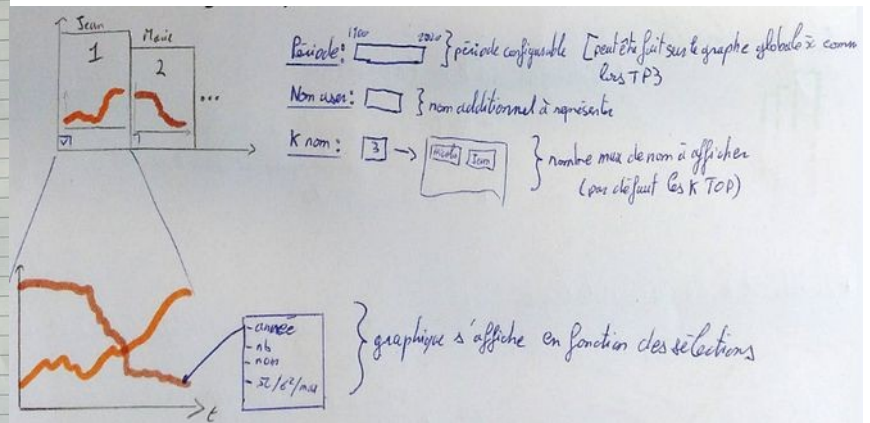 Jean
Marie
1
2
...
1900
2020
Période: } période configurable [peut être fait sur le graphe globale x comm
lors TP3
Nom user: } nom additionnel à représenter
K nom: 3 → Jean } nombre max de nom à afficher
(par défaut les K TOP)
- année
- nb
- nom
} graphique s'affiche en fonction des sélections
t